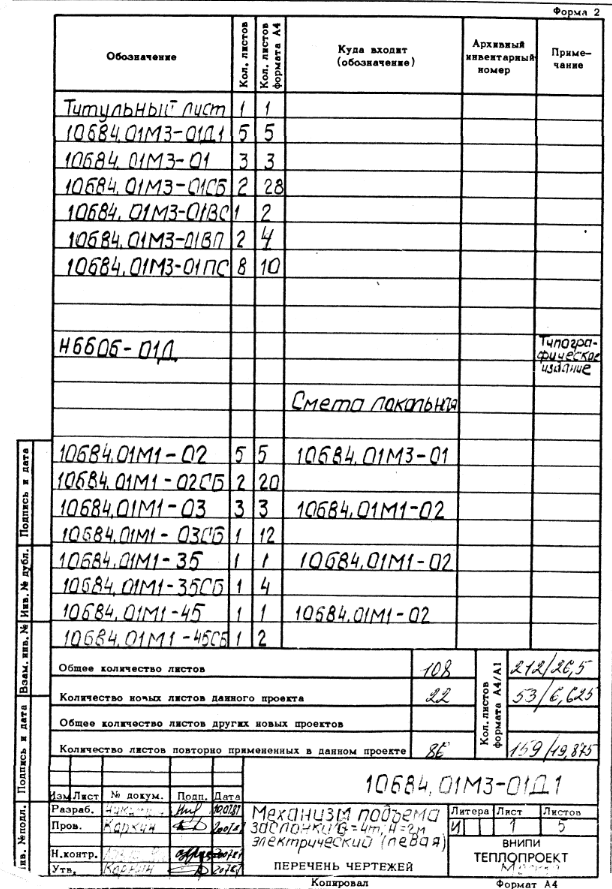 Форма 2
Обозначение
Кол. листов
Кол. листов формата А4
Куда входит (обозначение)
Архивный инвентарный номер
Приме-
чание
Титульный лист 1 1
10684.01М3-01Д1 5 5
10684.01М3-01 3 3
10684.01М3-01СБ 2 28
10684.01М3-01ВС 1 2
10684.01М3-01ВП 2 4
10684.01М3-01ПС 8 10
Н6606-01Д
Типогра-
фическое
издание
Смета локальная
10684.01М1-02 5 5 10684.01М3-01
10684.01М1-02СБ 2 20
10684.01М1-03 3 3 10684.01М1-02
10684.01М1-03СБ 1 12
10684.01М1-35 1 1 10684.01М1-02
10684.01М1-35СБ 1 4
10684.01М1-45 1 1 10684.01М1-02
10684.01М1-45СБ 1 2
Общее количество листов 108
Количество новых листов данного проекта 22
Общее количество листов других новых проектов
Количество листов повторно примененных в данном проекте
Кол. листов
формата А4/А1
212/26,5
53/6,625
159/19,875
Подпись и дата
Инв. № дубл.
Взам. инв. №
Подпись и дата
Инв. № подл.
10684.01М3-01Д1
Изм Лист № докум. Подп. Дата
Разраб.
Пров. Каркин
Н.контр.
Утв.
Механизм подъема
заслонки G=4т, H=2м
электрический (левая)
ПЕРЕЧЕНЬ ЧЕРТЕЖЕЙ
Литера Лист Листов
И 1 5
ВНИПИ
ТЕПЛОПРОЕКТ
Копировал
Формат А4